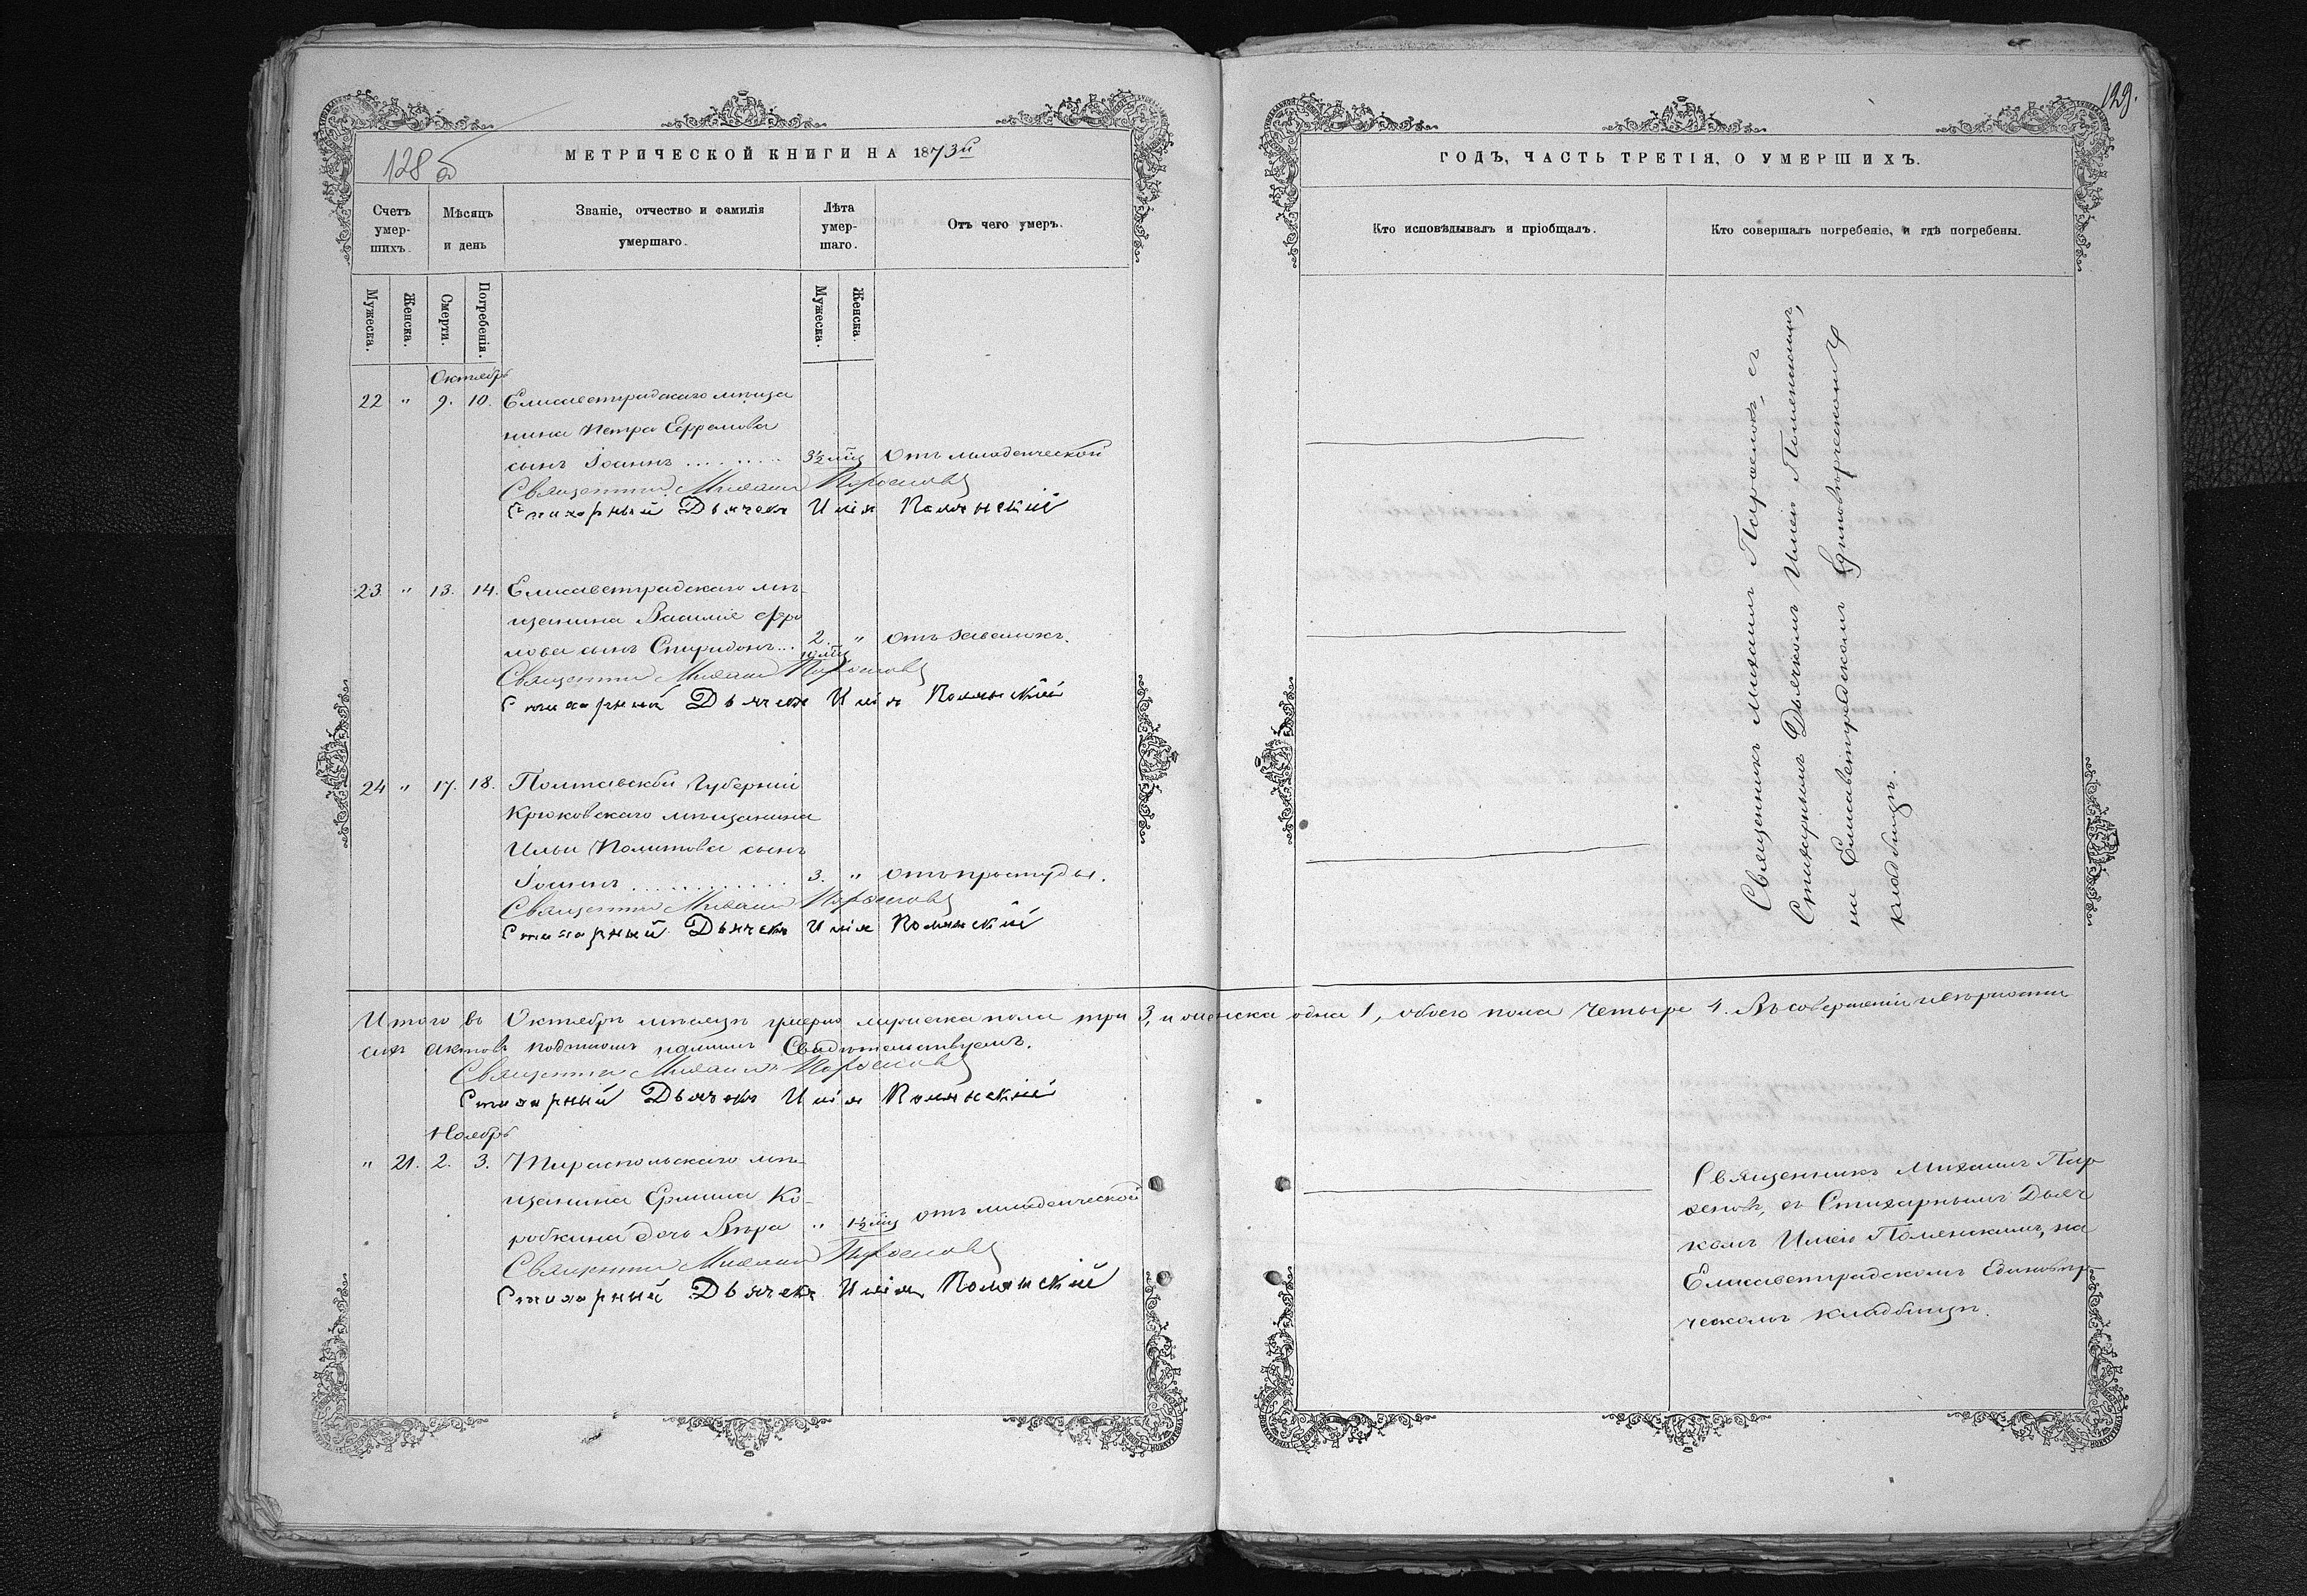 128 б
МЕТРИЧЕСКОЙ КНИГИ НА 1873й
Счетъ умер-шихъ.
Мѣсяцъ и день
Званіе, отчество и фамилія умершаго.
Лѣта умер-шаго.
Отъ чего умеръ.
Мужеска.
Женска.
Смерти.
Погребенія.
Мужеска.
Женска.
Октябрь
22 " 9. 10. Елисаветградскаго мѣща
нина Петра Ефремова
сынъ Іоаннъ ......... 3½ мѣс Отъ младенческой
Священникъ Михаилъ
Стихарный Дьячекъ Илія Полянскій
23. " 13. 14. Елисаветградскаго мѣ-
щанина Василія Фро
лова сынъ Спиридонъ... 2. "
Священникъ Михаилъ
Стихарный Дьячекъ Илія Полянскій
24 " 17. 18. Полтавской Губерніи
Крюковскаго мѣщанина
Ильи Политова сынъ
Іоаннъ ............ 3. " Отъ простуды.
Священникъ Михаилъ
Стихарный Дьячекъ Илія Полянскій
Итого въ Октябрѣ мѣсяцѣ умерло мужеска пола три 3, и женска одна 1, обоего пола четыре 4. Въ совершеніи и вѣрности
сихъ актовъ подписомъ нашимъ Свидѣтельствуемъ.
Священникъ Михаилъ
Стихарный Дьячекъ Илія Полянскій
Ноябрь
" 21. 2. 3. Тираспольскаго мѣ-
щанина Ермила Ко-
робкина дочь Вѣра " 1½ мѣс отъ младенческой
Священникъ Михаилъ
Стихарный Дьячекъ Илія Полянскій
129.
ГОДЪ, ЧАСТЬ ТРЕТІЯ, О УМЕРШИХЪ.
Кто исповѣдывалъ и пріобщалъ.
Кто совершалъ погребеніе, и гдѣ погребены.
Священникъ Михаилъ съ
Стихарнымъ Дьячкомъ Иліею Полянскимъ,
на Елисаветградскомъ Единовѣрческомъ
кладбищѣ.
Священникъ Михаилъ
съ Стихарнымъ Дьяч
комъ Иліею Полянскимъ, на
Елисаветградскомъ Единовѣр-
ческомъ кладбищѣ.